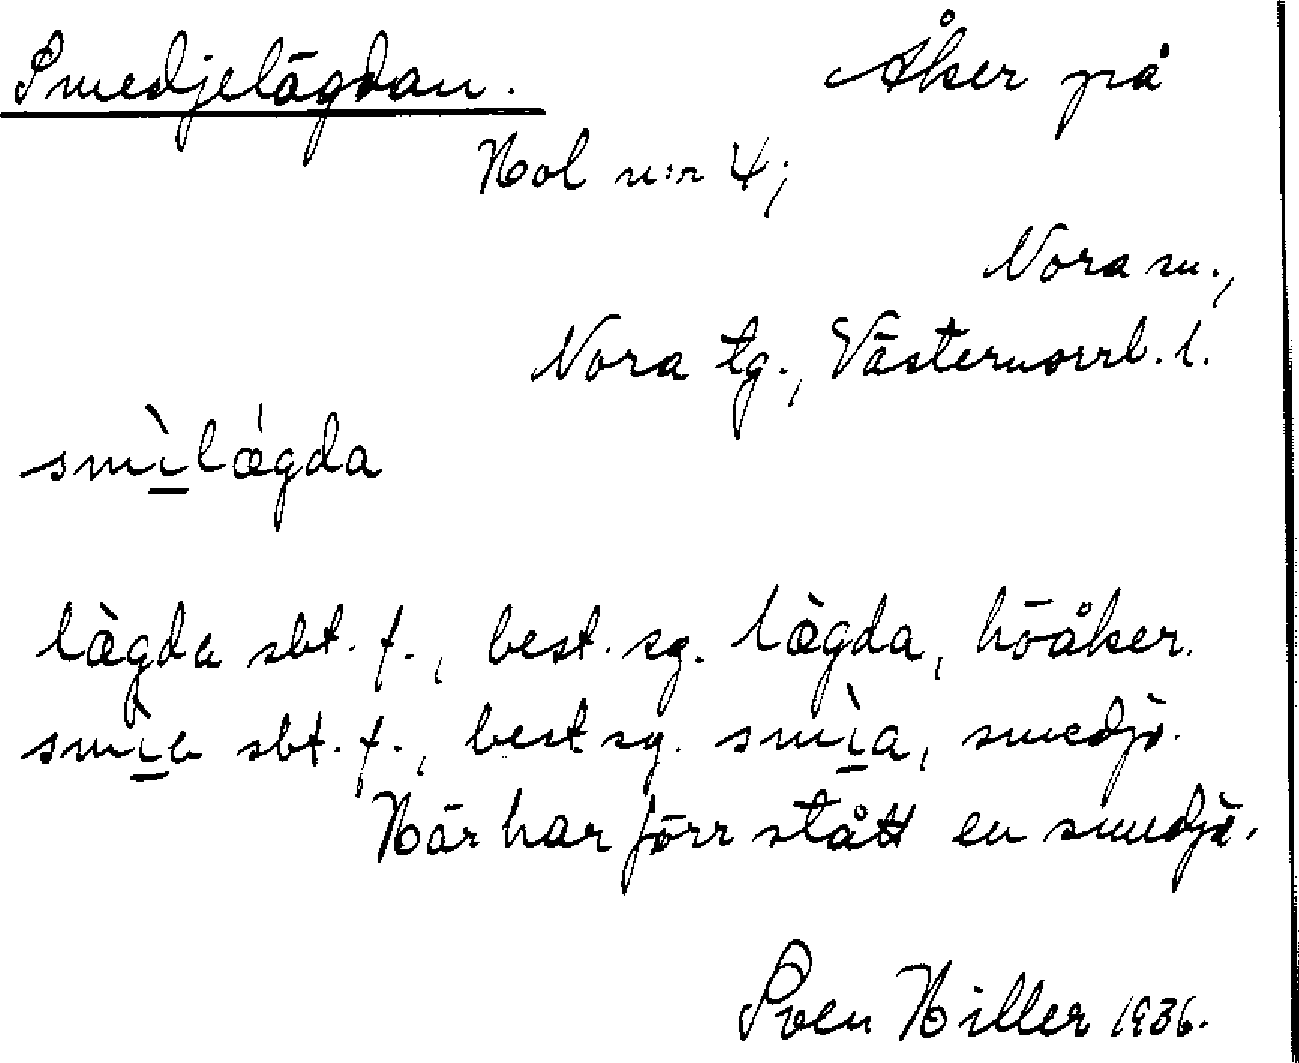 Smedjelägdan. Åker på
Hol n:r 4;
Nora sn.,
Nora tg., Västernorrl. l.
smìlǽgda
lægda sbt. f., best. sg. lægda, höåker.
smìa sbt. f., best. sg. smìa, smedja.
Här har förr stått en smedja.
Sven Hiller 1936.